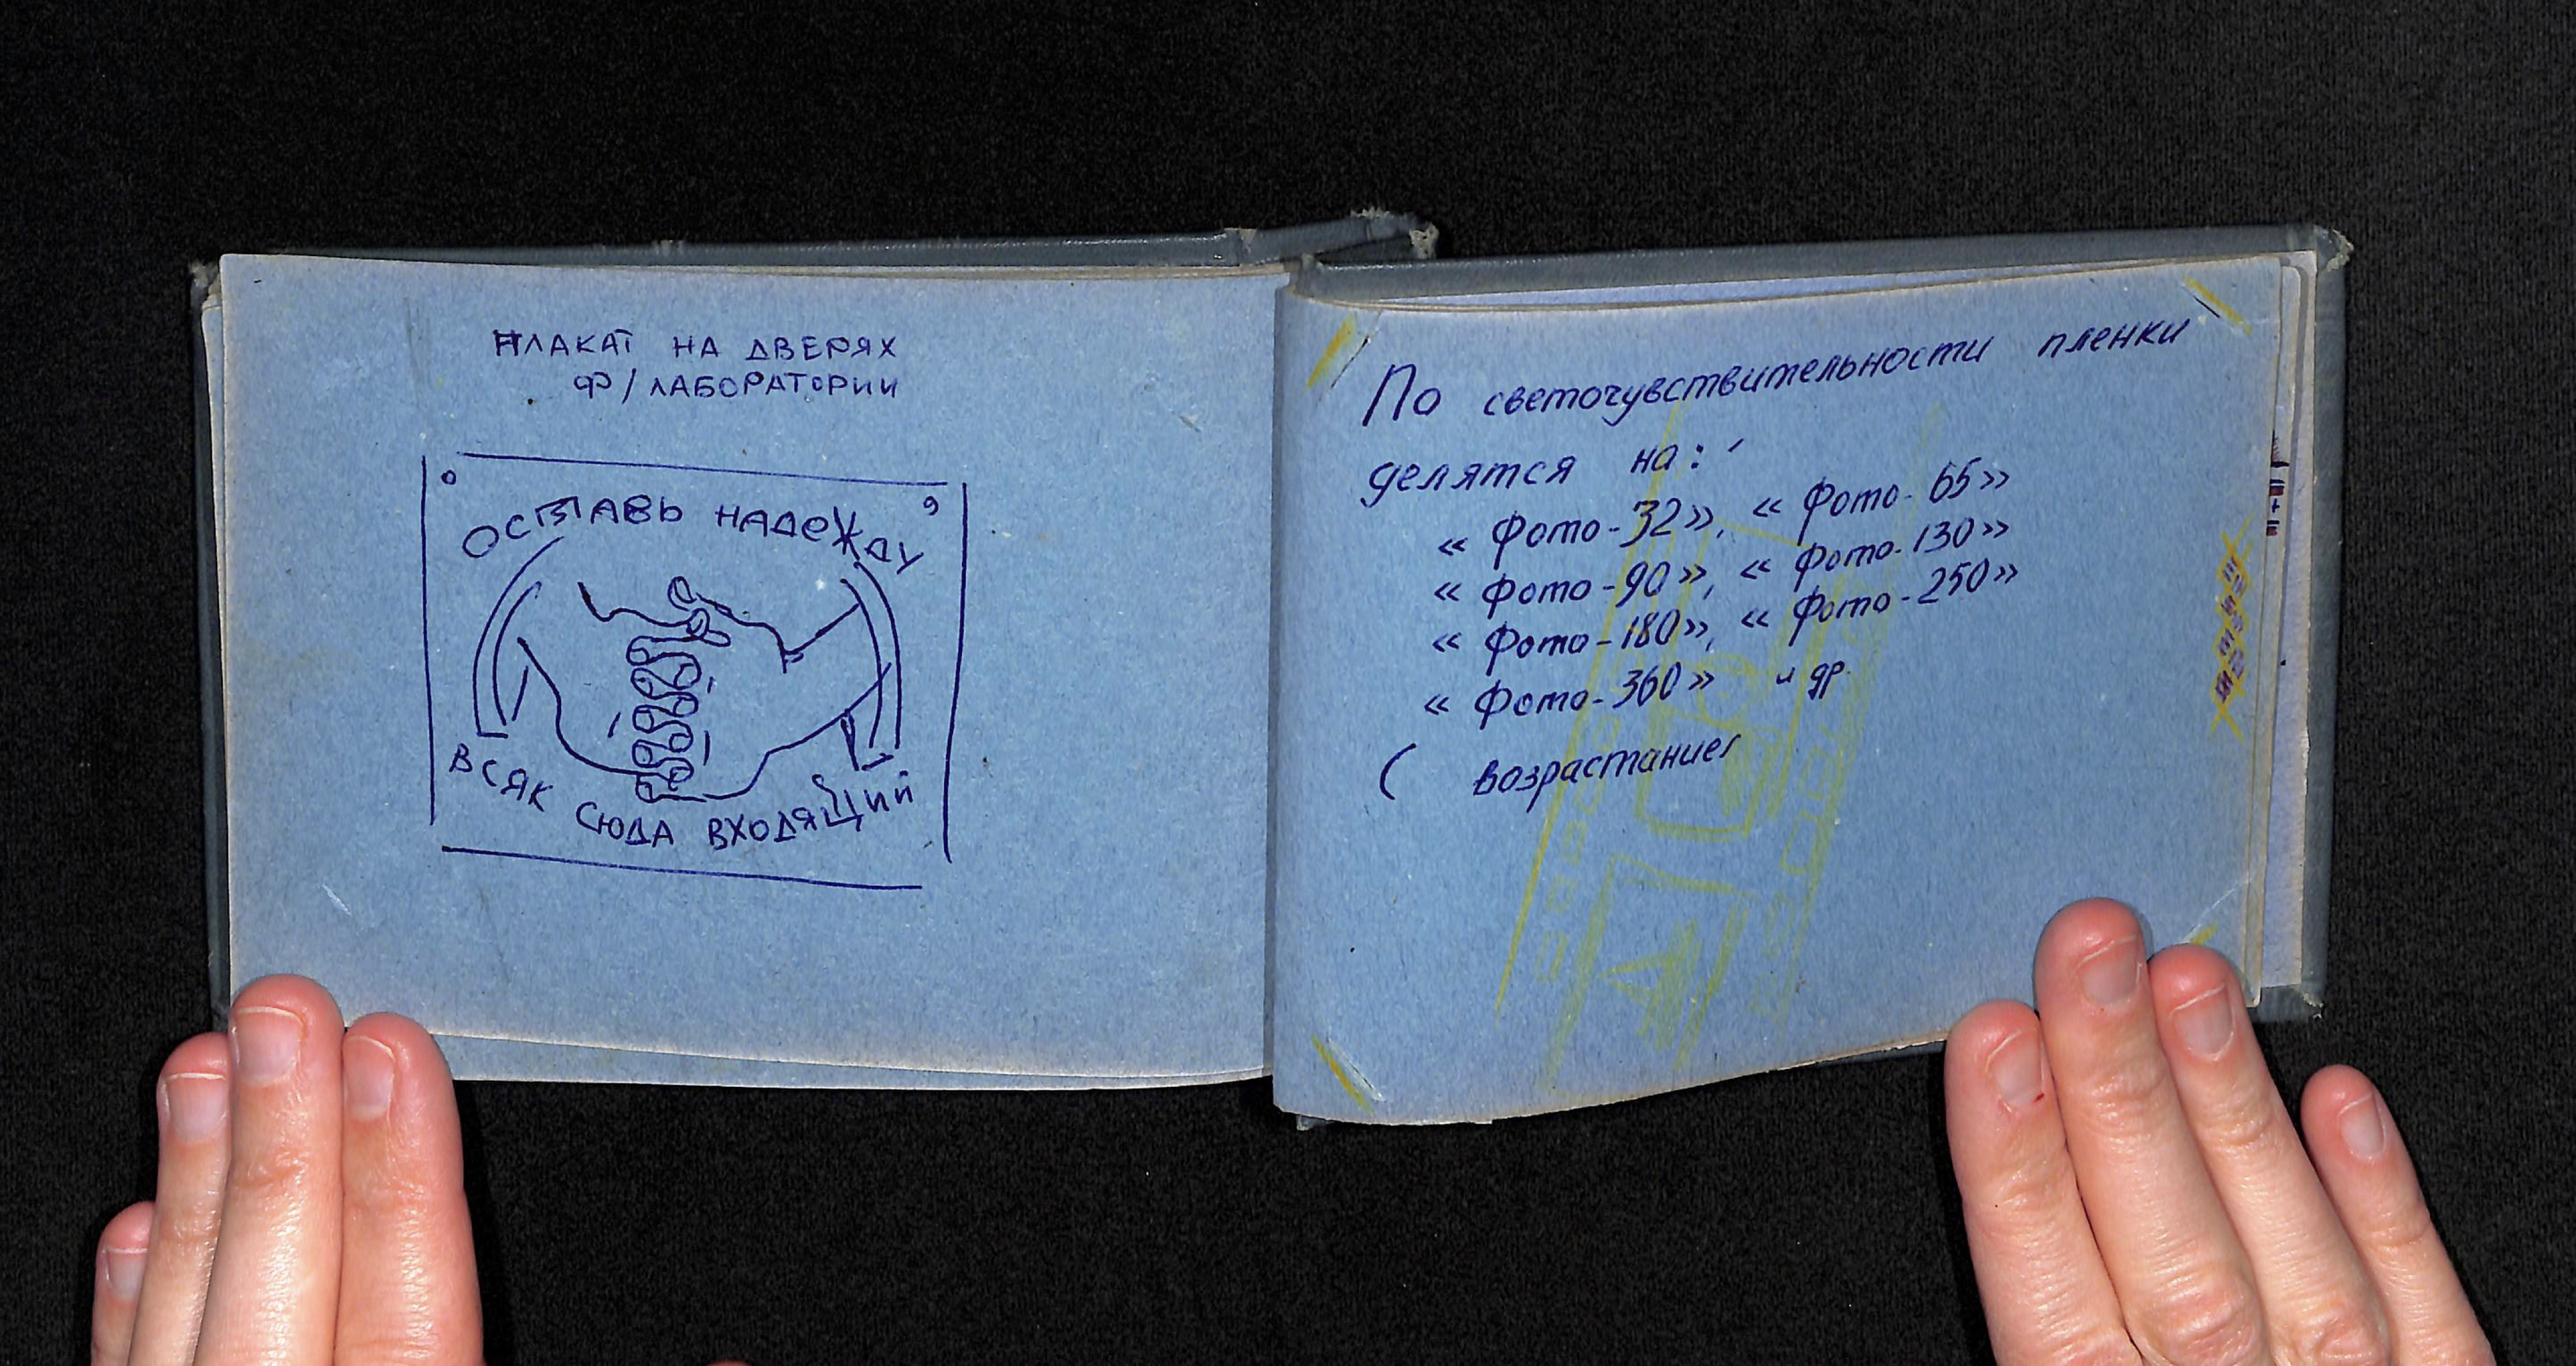 ПЛАКАТ НА ДВЕРЯХ
Ф/ЛАБОРАТОРИИ
ОСТАВЬ НАДЕЖДУ
ВСЯК СЮДА ВХОДЯЩИЙ
По светочувствительности пленки
делятся на:
« Фото-32», « Фото-65»
« Фото-90», « Фото-130»
« Фото-180», « Фото-250»
« Фото-360» и др.
( возрастание